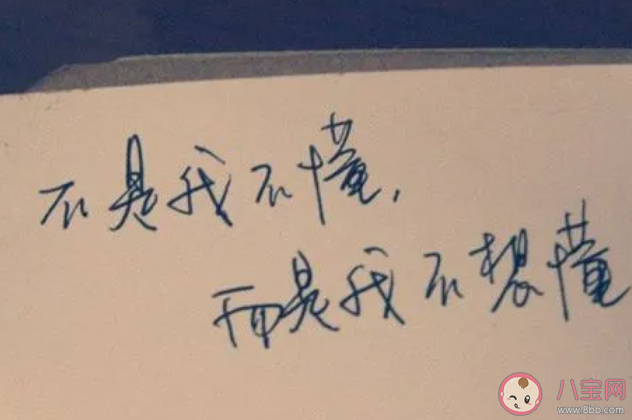 不是我不懂，
而是我不想懂
八宝网
www.8bb.com